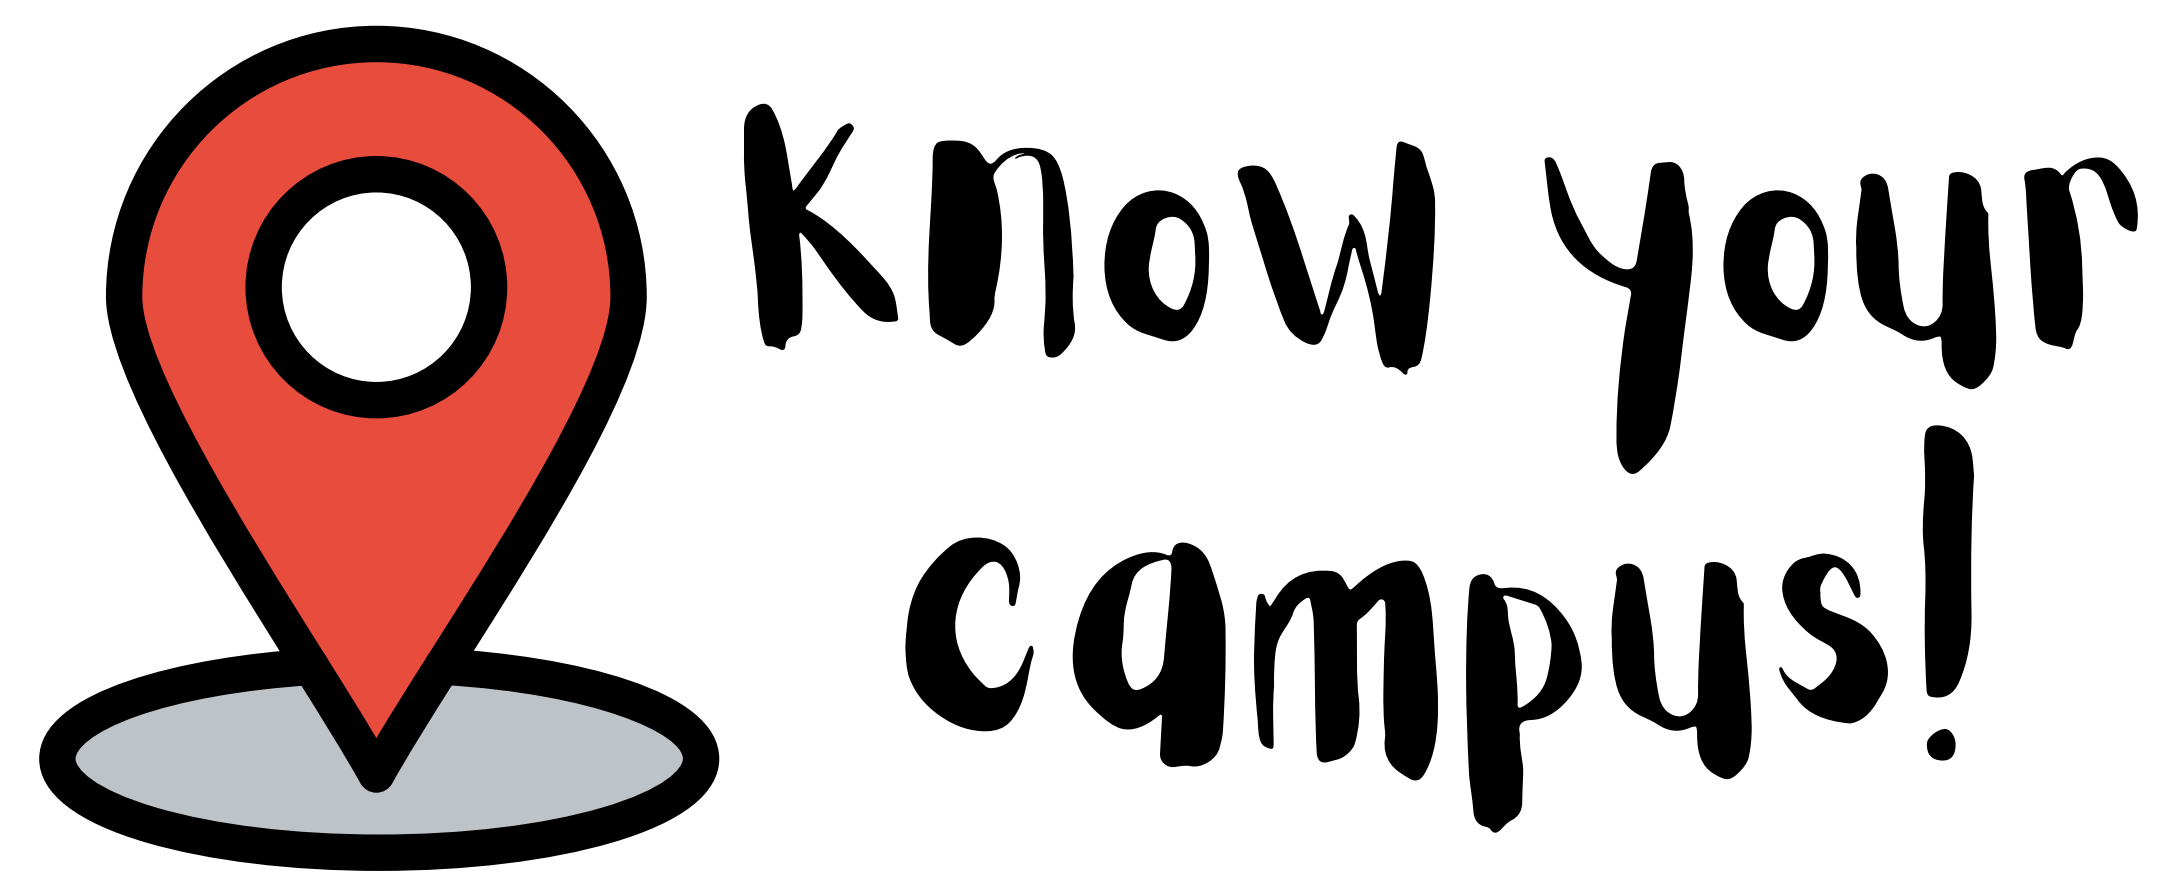 Know your
campus!